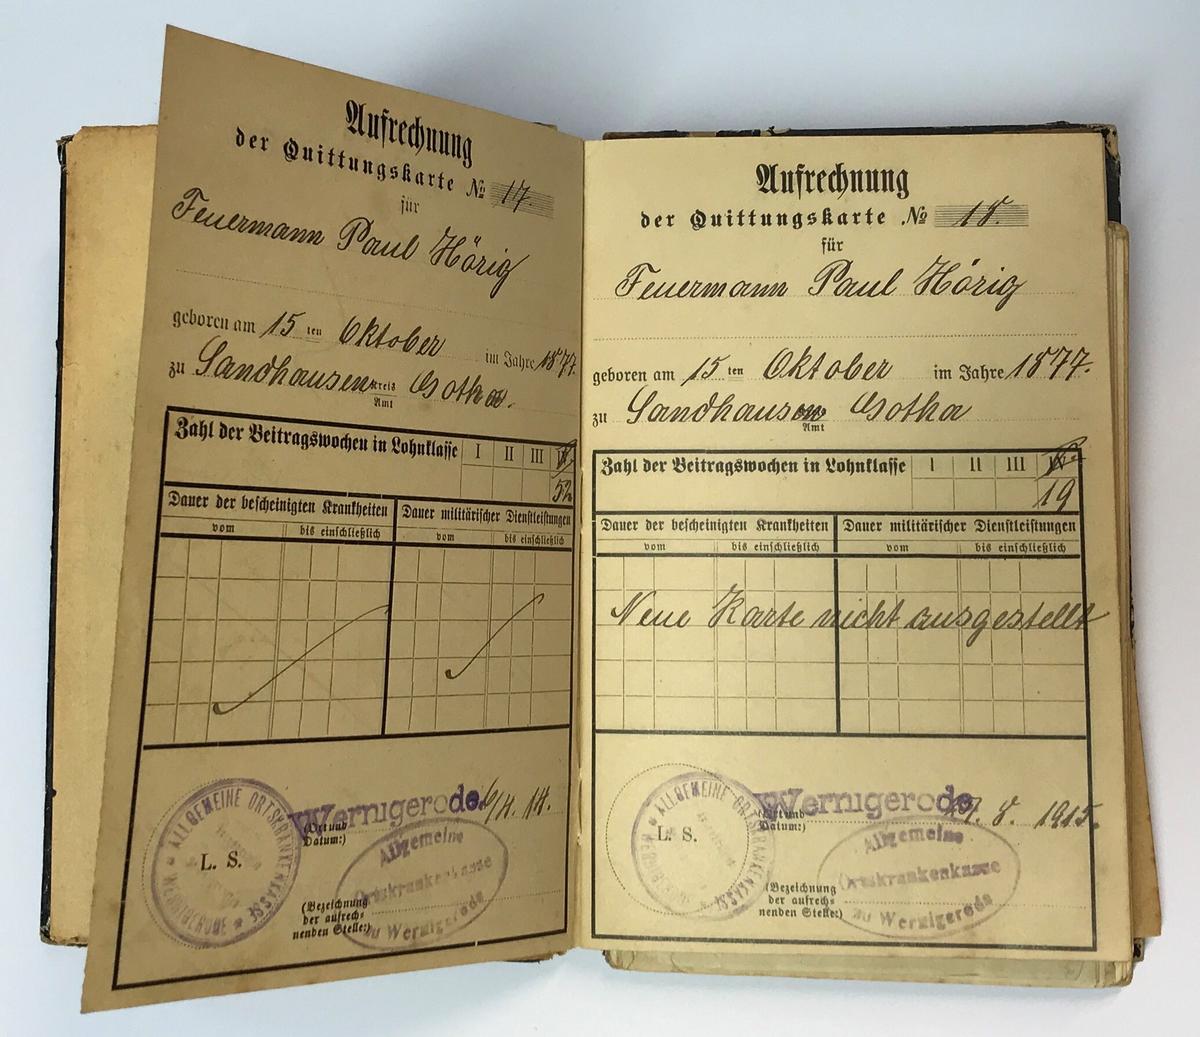 Aufrechnung
der Quittungskarte № 17.
für
Feuermann Paul Hörig
geboren am 15 ten Oktober im Jahre 1877.
zu Sandhausen Kreis Gotha.
Amt
Zahl der Beitragswochen in Lohnklasse I II III
52
Dauer der bescheinigten Krankheiten Dauer militärischer Dienstleistungen
vom bis einschließlich vom bis einschließlich
Wernigerode 14.
(Ort und
Datum:)
ALLGEMEINE ORTSKRANKENKASSE * WERNIGERODE *
L. S.
Allgemeine
Ortskrankenkasse
zu Wernigerode
(Bezeichnung
der aufrech-
nenden Stelle:)
Aufrechnung
der Quittungskarte № 18.
für
Feuermann Paul Hörig
geboren am 15 ten Oktober im Jahre 1877.
zu Sandhausen Gotha
Amt
Zahl der Beitragswochen in Lohnklasse I II III
19
Dauer der bescheinigten Krankheiten Dauer militärischer Dienstleistungen
vom bis einschließlich vom bis einschließlich
Neue Karte nicht ausgestellt
Wernigerode 8. 1915.
(Ort und
Datum:)
ALLGEMEINE ORTSKRANKENKASSE * WERNIGERODE *
L. S.
Allgemeine
Ortskrankenkasse
zu Wernigerode
(Bezeichnung
der aufrech-
nenden Stelle:)